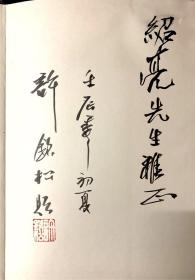 紹亮先生雅正
壬辰年初夏
許銘松